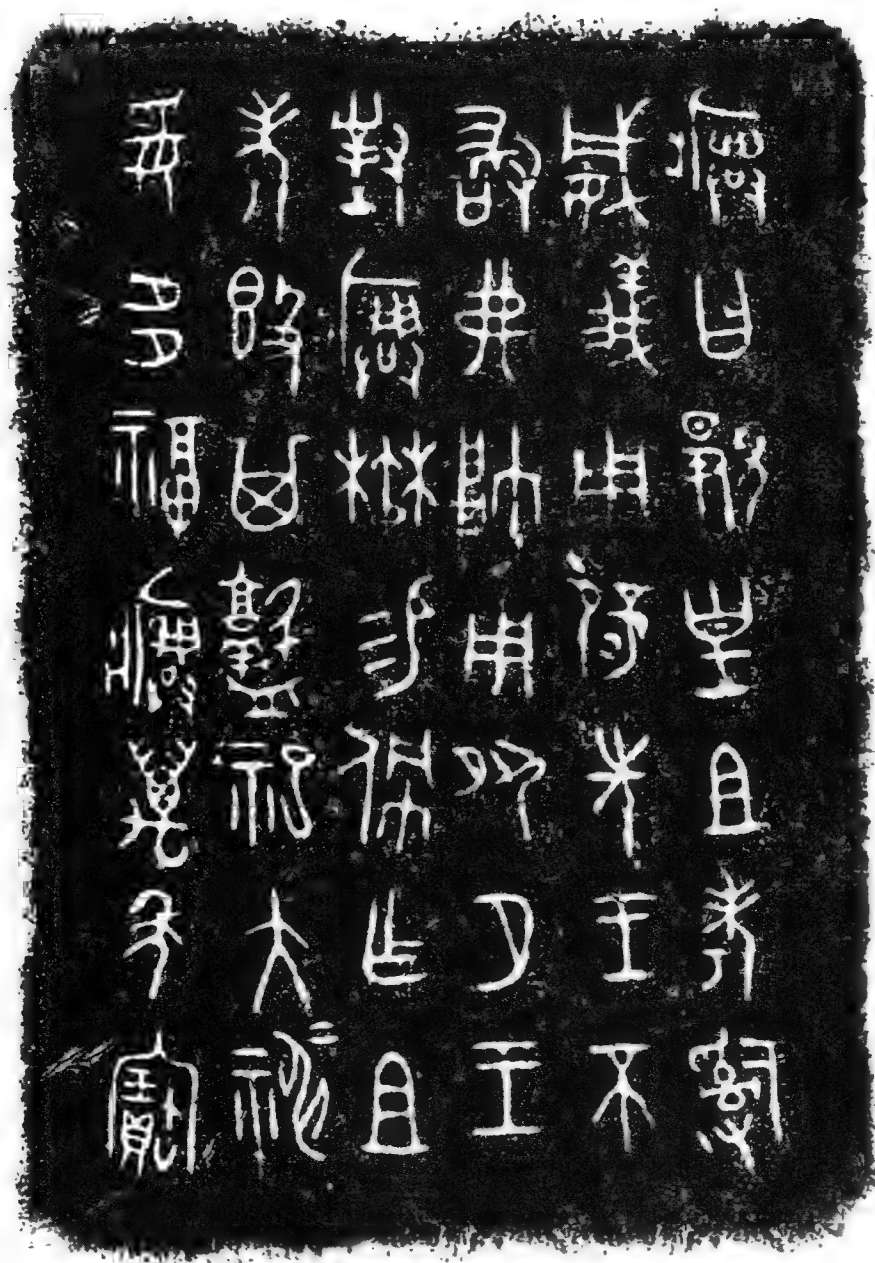 𤼈曰覭皇且考𤔲
威義用辟先王不
敢弗帥用夙夕王
對𤼈楙易佩乍且
考簋其𦎫祀大神=
妥多福𤼈萬年寶